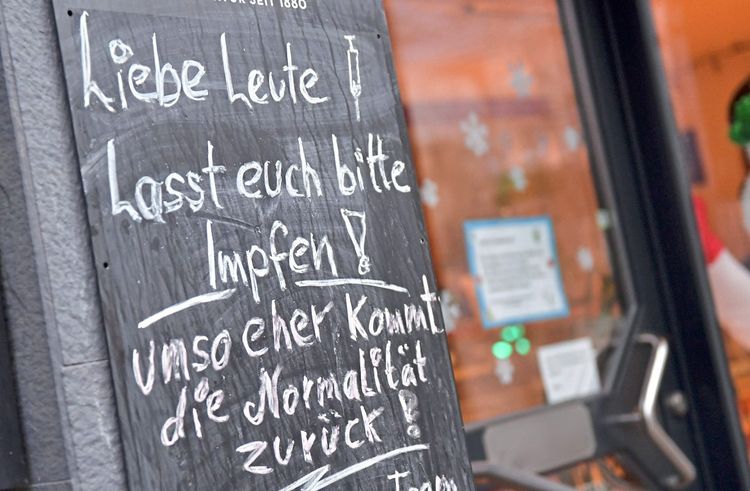 SEIT 1880
Liebe Leute !
Lasst euch bitte
Impfen !
umso eher Kommt
die Normalität
zurück !
Team